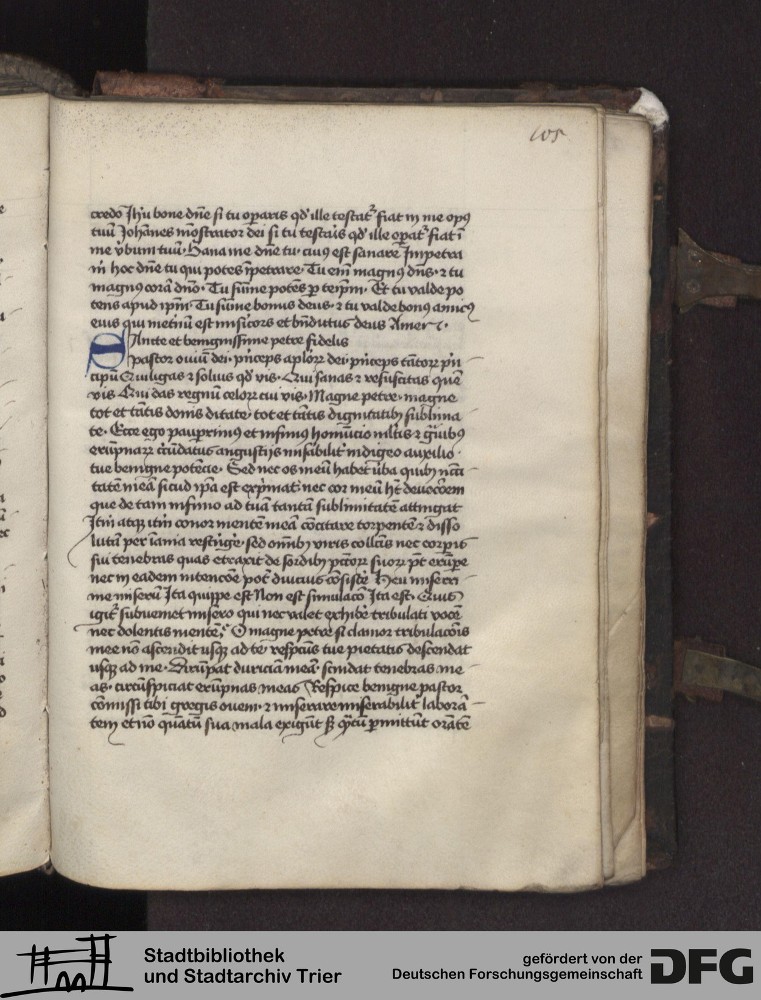 105
credo Jhū bone dn̄e si tu opāris qd' ille testat᷑ fiat in me opꝰ
tuū Johānes mōstrator dei si tu testāis qd' ille opat᷑ fiat ī
me v̄bum tuū · Sana me dn̄e tu · cuiꝰ est sanare Impetra
m̄ hoc dn̄e tu qui potes īpetrare · Tu em̄ magnꝰ dn̄s · ⁊ tu
magnꝰ corā dn̄o · Tu sūme potēs ꝑ teip̄m · Et tu valde po
tens apud ip̄m · Tu sūme bonus deus · ⁊ tu valde bonꝰ amicꝰ
eius qui
Sancte et benignissime petre fidelis
pastor ouiū dei · pͥnceps ap̄lorꝝ dei · pͥnceps tātorꝝ pͥn
cipū Qui ligas ⁊ soluis qd' vis · Qui sanas ⁊ resuscitas quē
vis Qui das regnū celorꝝ cui vis · Magne petre · magne
tot et tātis donis ditate · tot et tātis dignitatibꝫ sublima
te · Ecce ego paup̄rimꝰ et infimꝰ homūcio
erūpnarꝝ angustijs mis̄abilit᷑ indigeo auxilio ·
tue benigne potēcie · Sed nec os meū habet v̄ba quibꝫ nc̄c̄i
tatē meā sicud ip̄a est expͥmat · nec cor meū hꝫ deuoc̄oem
que de tam infimo ad tuā tantā sublimitatē attingat
Itm̄ atqꝫ itm̄ conor mentē meā cōcitare torpentē ⁊ disso
lutā per ināia restrinḡe · sed om̄ibꝫ viris coll̄cis nec
sui tenebras quas etraxit de sordibꝫ pc̄torꝝ suorꝝ pt̄ erūpe
nec in eadem intencōe pot̄ diucius cōsiste Heu miserri
me miserū Ita quippe est Non est simulac̄o Ita est · Quis
igit᷑ subueniet misero qui nec valet exhibe tribulati vocē
nec dolentis mentē · O magne petre si clamor tribulac̄ois
mee nō ascendit usqꝫ ad te resp̄cus tue pietatis descendat
usqꝫ ad me · Dirūpat duriciam meā · scindat tenebras me
as · circūspiciat erūpnas meas Respice benigne pastor
cōmissi tibi gregis ouem · ⁊ miserare miserabilit᷑ laborā
tem et nō quātū sua mala exigūt sꝫ q̄tū ꝑmittūt orātē
Stadtbibliothek
und Stadtarchiv Trier
gefördert von der
Deutschen Forschungsgemeinschaft
DFG